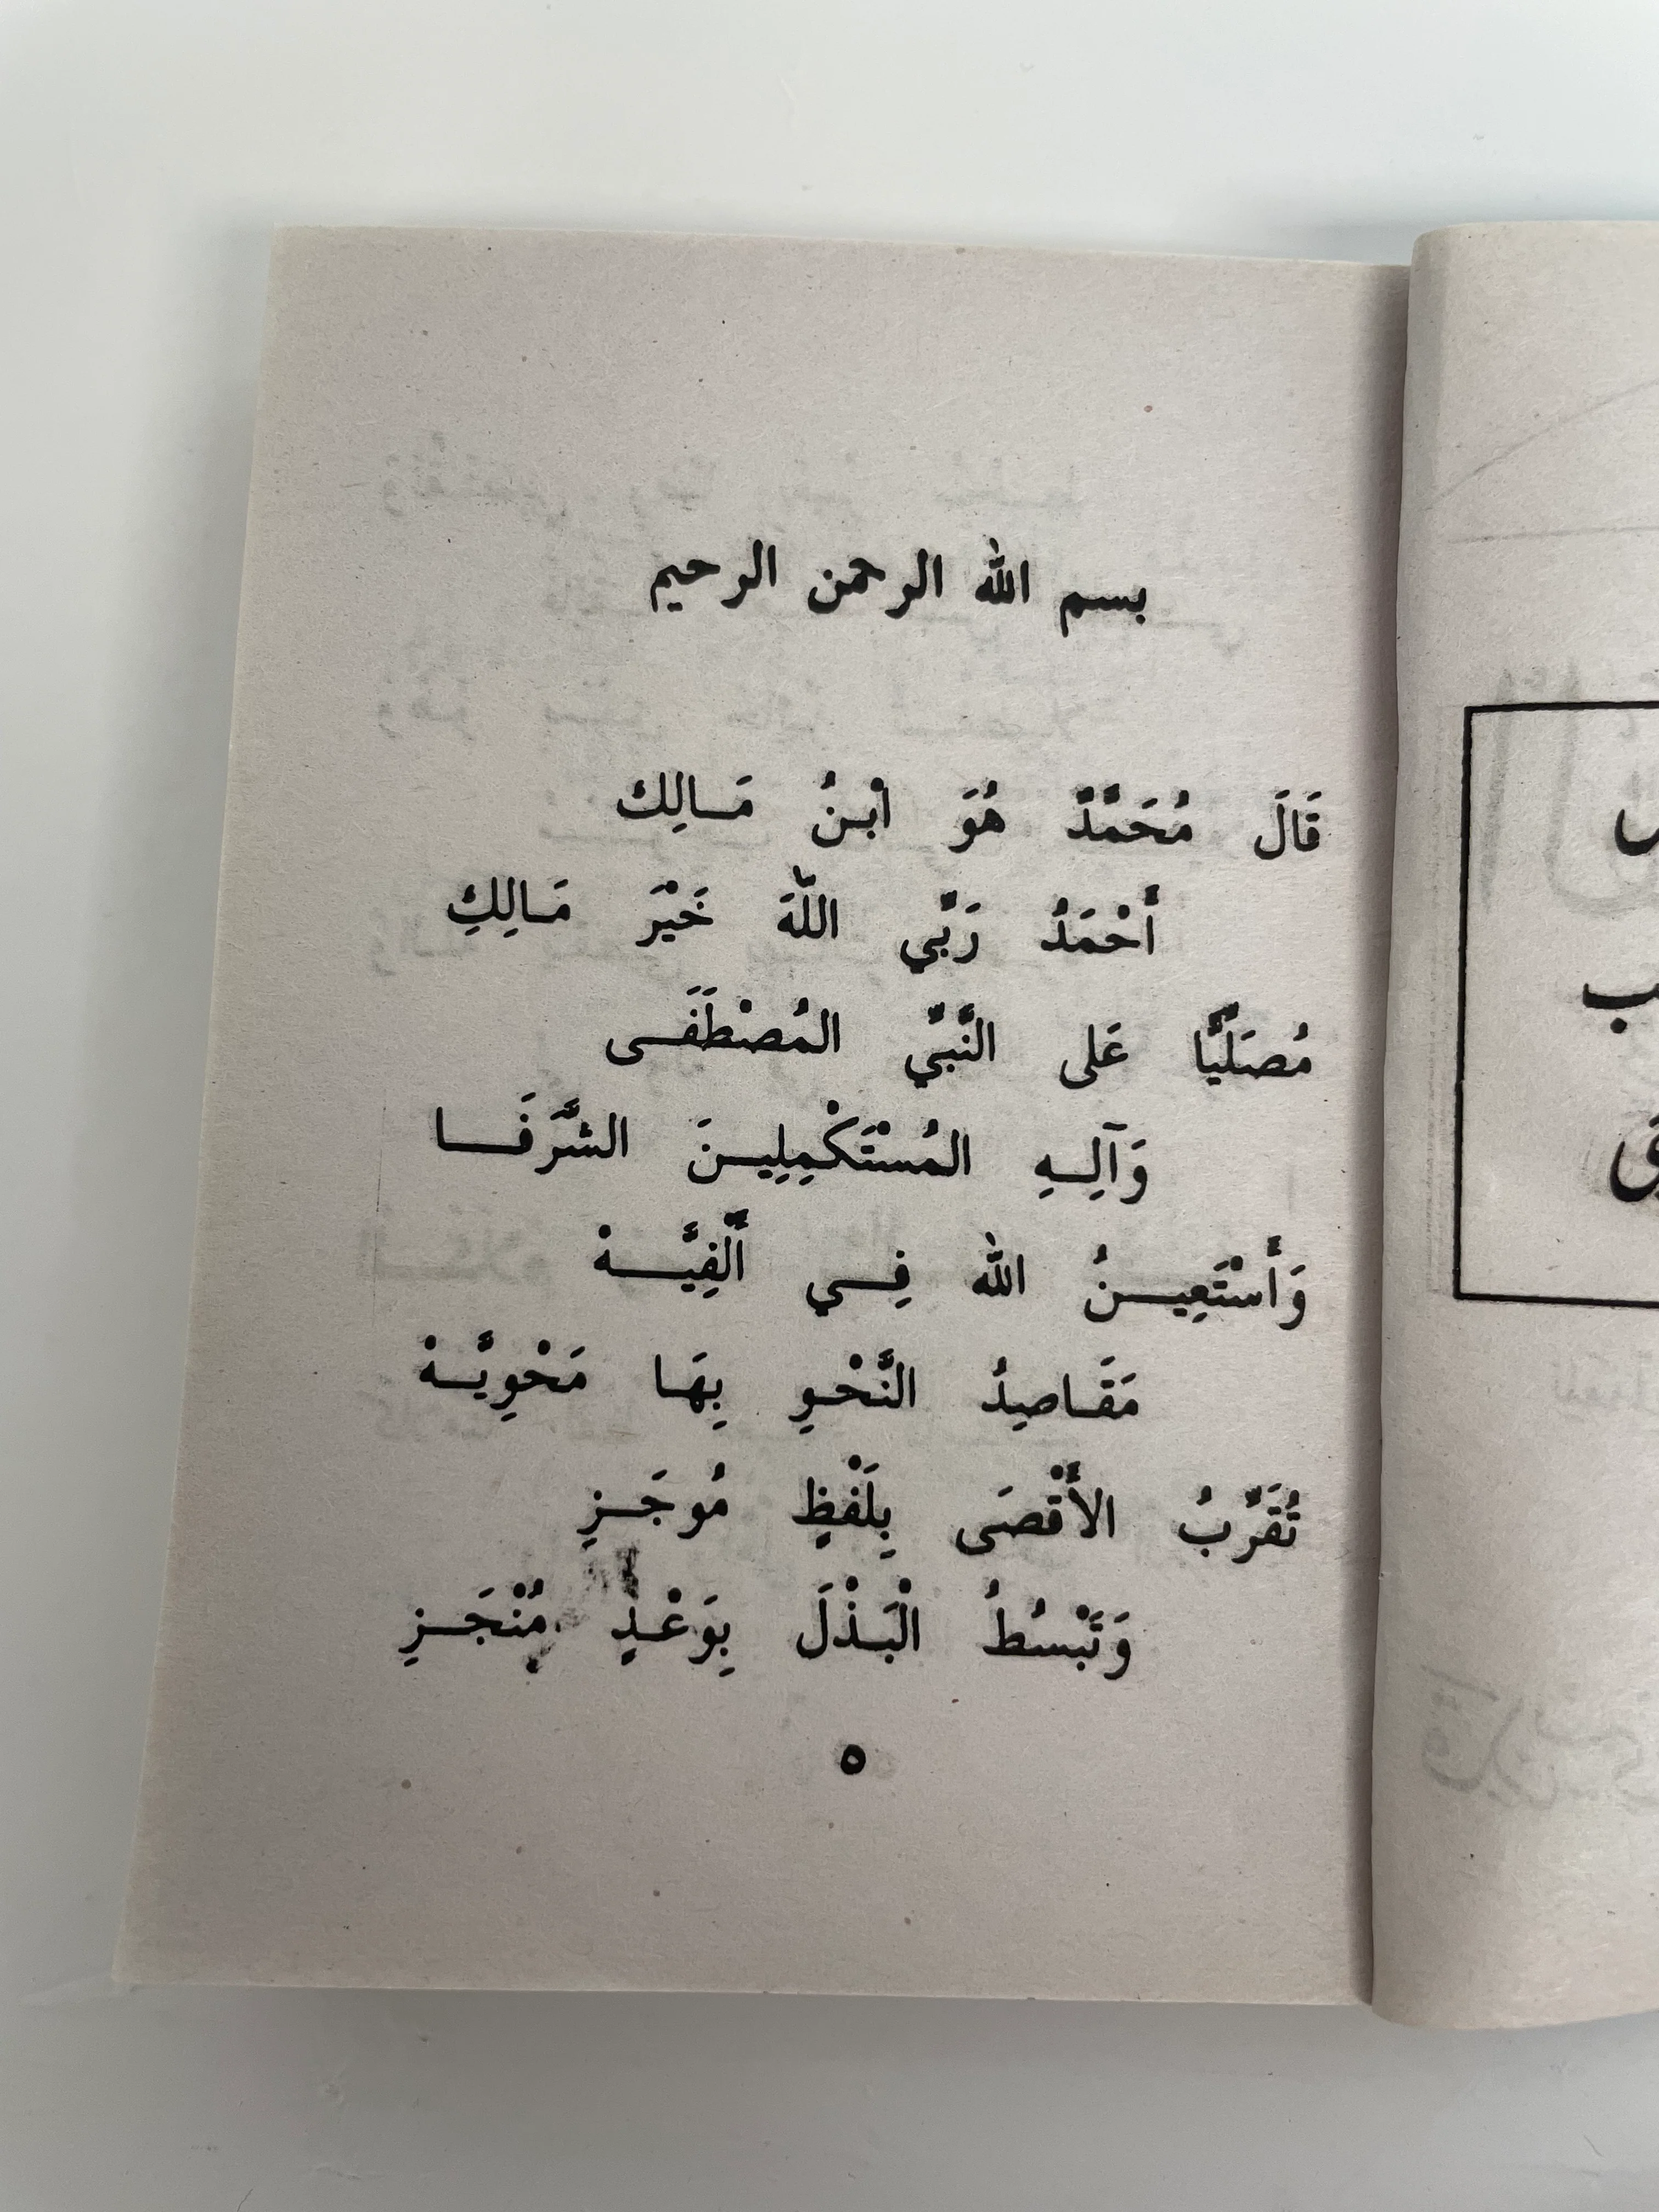 بسم الله الرحمن الرحيم
قَالَ مُحَمَّدٌ هُوَ ابْنُ مَـالِك
أَحْمَدُ رَبِّي اللَّهَ خَيْرَ مَـالِكِ
مُصَلِّيًا عَلى النَّبِيِّ المُصْطَفَـى
وَآلِـهِ المُسْتَكْمِلِيـنَ الشَّرَفَـا
وَأَسْتَعِيـنُ الله فِـي أَلْفِيَّـهْ
مَقَـاصِدُ النَّحْـوِ بِهَـا مَحْوِيَّـهْ
تُقَرِّبُ الأَقْصَى بِلَفْظٍ مُوجَـزِ
وَتَبْسُطُ الْبَـذْلَ بِوَعْـدٍ مُنْجَـزِ
٥